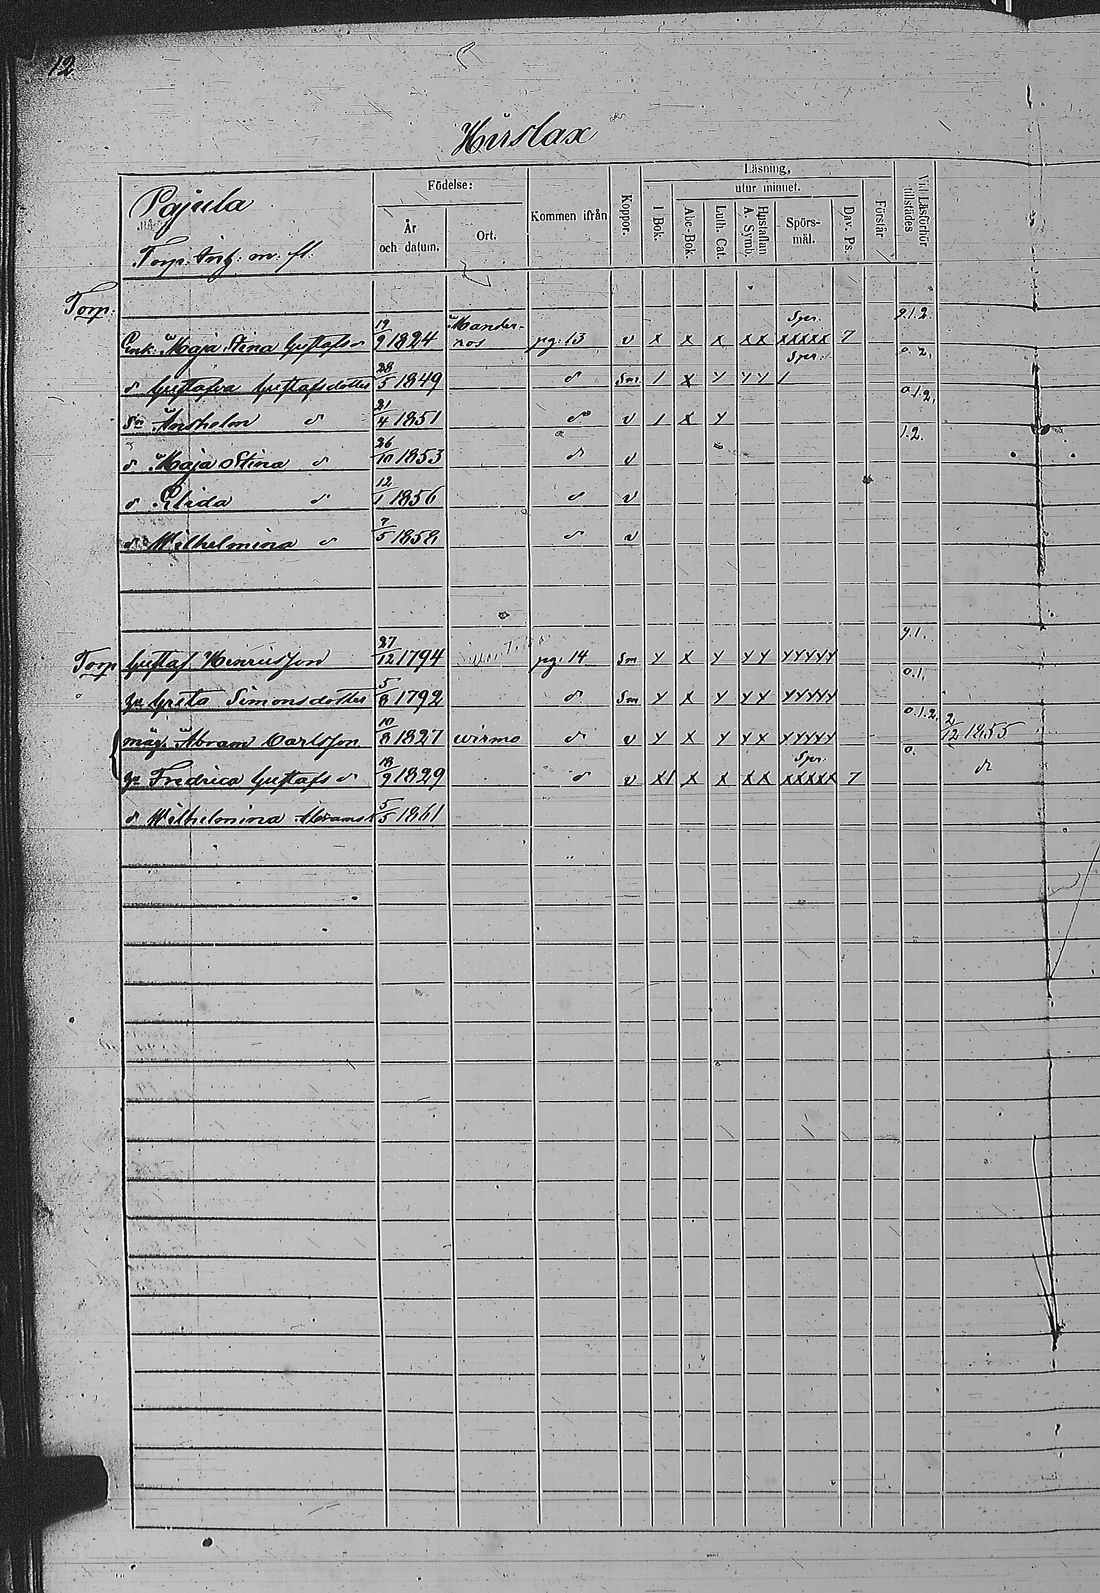 12
Huslax
Pajula
Torp. Inh: m. fl.
Födelse:
År och datum.
Ort.
Kommen ifrån
Koppor.
Läsning,
utur minnet.
I Bok.
Abc-Bok.
Luth. Cat.
Hustaflan A. Symb.
Spörs-mål.
Dav. Ps.
Förstår
Vid Läsförhör tillstädes
Torp:
Enk: Maja Stina Gustafs d 19/9 1824 pg. 13 v x x x x x Spör. x x x x x 7 9.1.2.
d Gustafva Gustafsdotter 28/5 1849 d Sm 1 x y y y Spör. / 0.2.
Sn d 21/4 1851 do v 1 x y 0.1.2.
d Maja Stina d 26/10 1853 d v 1.2.
d d 12/1 1856 d v
d Wilhelmina d 7/5 1858 d v
Torp Gustaf Henriksson 27/12 1794 pg. 14 Sm y x y y y y y y y y 9.1.
hu Greta Simonsdotter 5/8 1792 d Sm y x y y y y y y y y 0.1.
måg Abram Carlsson 10/8 1827 Wirmo d v y x y y x y y y y y 0.1.2. 2/12 1855
hu Fredrica Gustafs d 18/9 1829 d v x1 x x x x Spör. x x x x x 7 0. d
d Wilhelmina Abrams d 5/5 1861